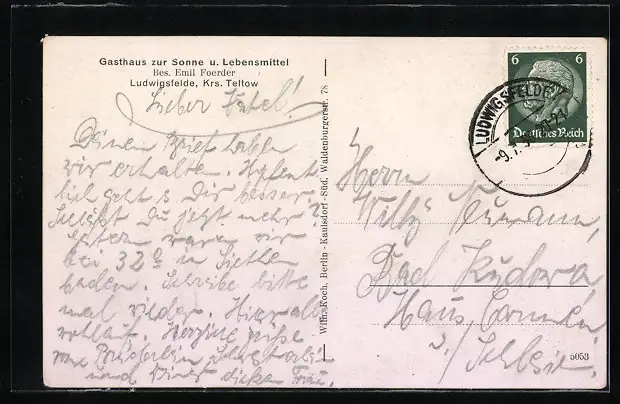 Gasthaus zur Sonne u. Lebensmittel
Bes. Emil Foerder
Ludwigsfelde, Krs. Teltow
Lieber Vatel!
Deinen Brief haben
wir erhalten. Hoffent
lich geht's Dir besser
Schläfst Du jetzt mehr?
Gestern waren wir
bei 32° in Siethen
baden. Schreibe bitte
mal wieder. Hier alle
wohlauf. Herzliche Grüße
und Deiner dicken Frau.
Wilh. Koch, Berlin - Kaulsdorf-Süd, Waldenburgerstr. 78
6 6
Deutsches Reich
LUDWIGSFELDE
Herrn
Willy Neumann,
Bad Kudowa
Haus Carmen
i./Schles.
5053